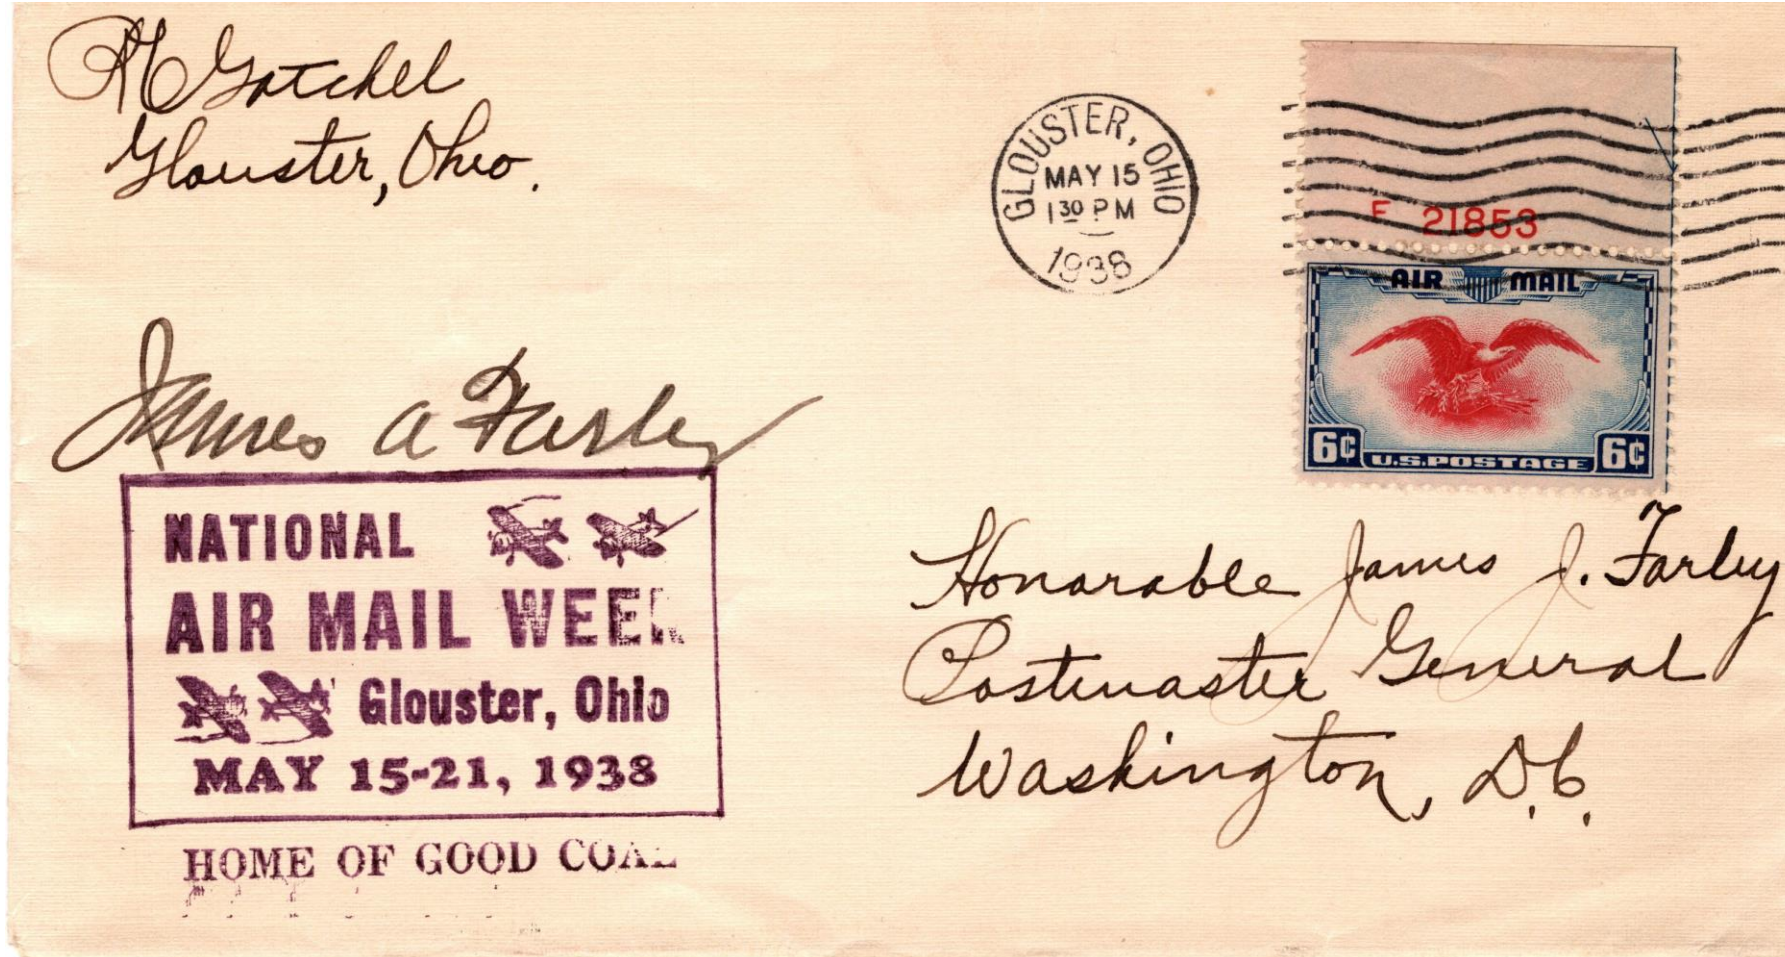 RG Gotchel
Glouster, Ohio.
GLOUSTER, OHIO
MAY 15
1 30 PM
1938
F 21853
AIR MAIL
6¢ U.S. POSTAGE 6¢
James A Farley
NATIONAL
AIR MAIL WEEK
Glouster, Ohio
MAY 15-21, 1938
HOME OF GOOD COAL
Honorable James J. Farley
Postmaster General
Washington, D.C.